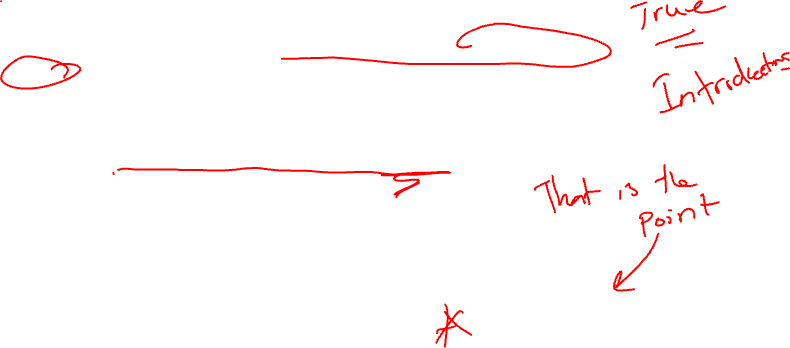 True
Introductions
That is the
point